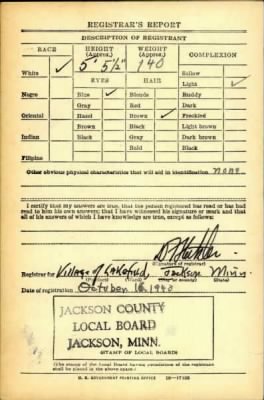 REGISTRAR'S REPORT
DESCRIPTION OF REGISTRANT
RACE
HEIGHT (Approx.)
WEIGHT (Approx.)
COMPLEXION
White ✓ 5' 5½" 140 Sallow
EYES HAIR Light ✓
Negro Blue ✓ Blonde Ruddy
Gray Red Dark
Oriental Hazel Brown ✓ Freckled
Brown Black Light brown
Indian Black Gray Dark brown
Bald Black
Filipino
Other obvious physical characteristics that will aid in identification none
I certify that my answers are true; that the person registered has read or has had
read to him his own answers; that I have witnessed his signature or mark and that
all of his answers of which I have knowledge are true, except as follows:
(Signature of registrar)
Registrar for Village of Lakefield, Jackson Minn.
(State)
Date of registration October 16 1940
JACKSON COUNTY
LOCAL BOARD
JACKSON, MINN.
(STAMP OF LOCAL BOARD)
(The stamp of the Local Board having jurisdiction of the registrant
shall be placed in the above space.)
U. S. GOVERNMENT PRINTING OFFICE